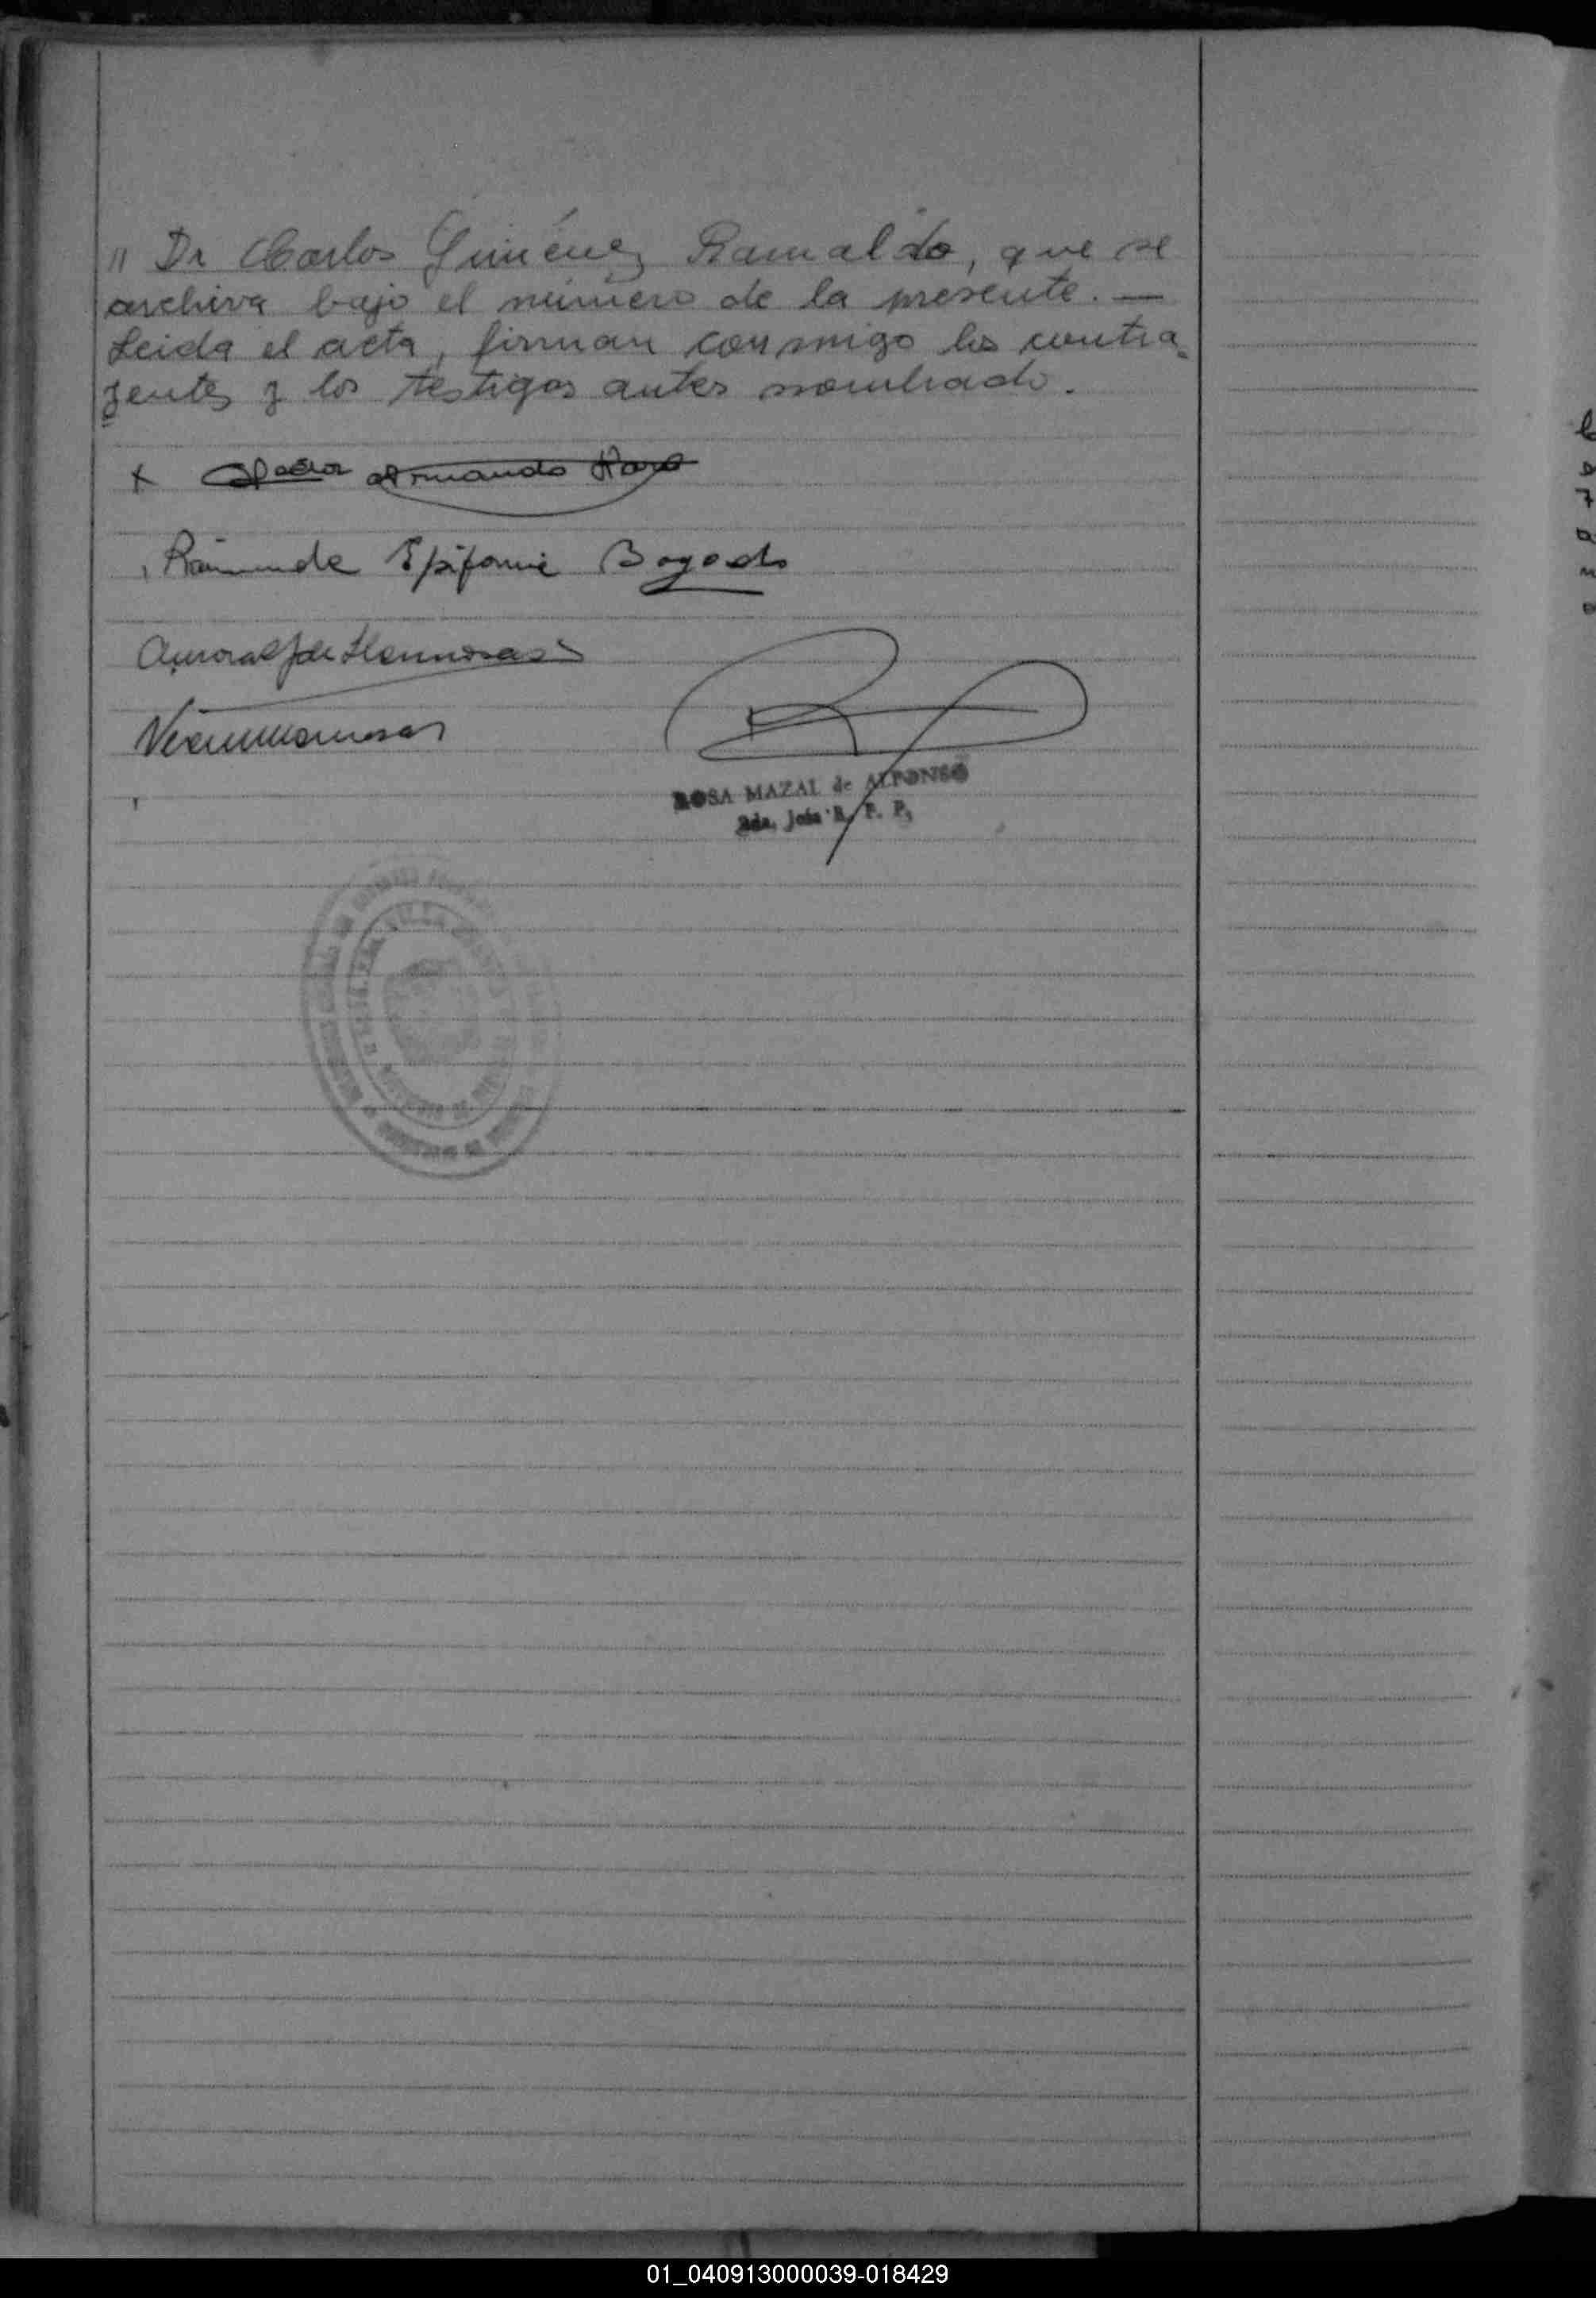 " Dr Carlos Giménez Ramaldo, que se
archiva bajo el número de la presente. —
Leida el acta, firman conmigo los contra-
yentes y los testigos antes nombrado.
x Armando
Raimunda Epifania Bogado
Aurora de Hermosa
ROSA MAZAL de ALFONSO
R. P. P.
01_040913000039-018429